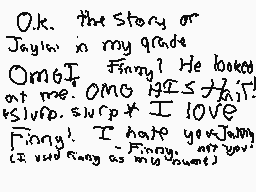 O.k. the story of
Jaylai is my grade
OMG I Finny! He looked
at me! OMG HIS Hair!
*slurp. slurp* I love
Finny! I hate you Jaylai
- Finny. not you!
(I used Finny as my name!)